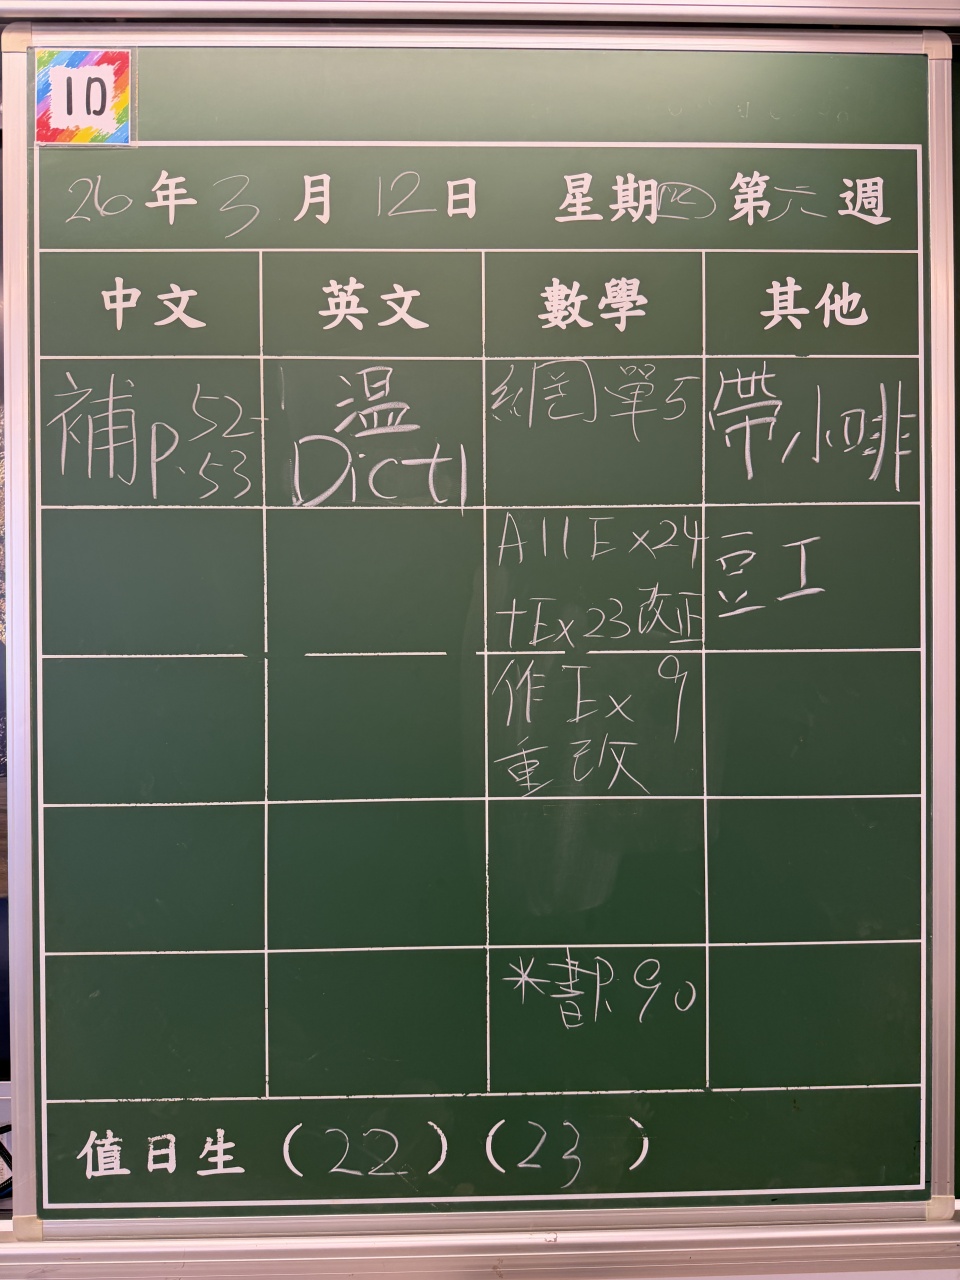 1D
26年3月12日 星期四 第六週
中文 英文 數學 其他
補 P.52-53
温 Dict1
網图單5
帶小啡
A11 Ex24
+Ex23改正
豆工
作 Ex 9
重改
*書P.90
值日生 (22) (23)